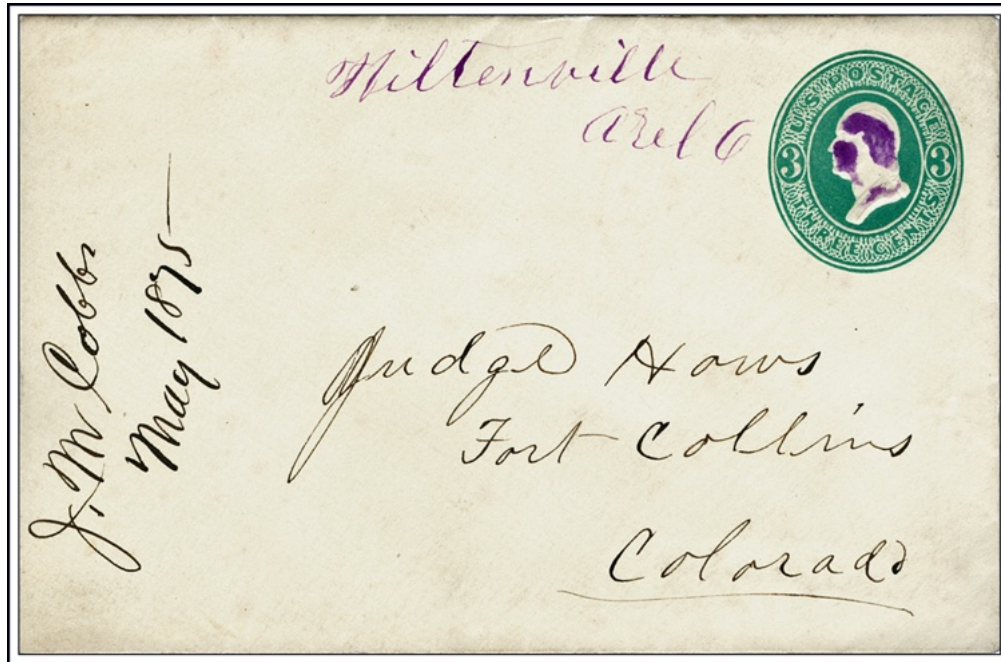 Wiltenville
U.S. POSTAGE
3 3
THREE CENTS
J. M Cobb
May 1875
Judge Hows
Fort Collins
Colorado